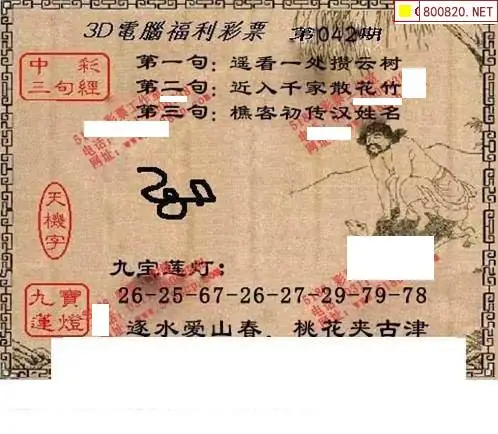 800820.NET
3D電腦福利彩票 第042期
中彩
三句經
第一句：遥看一处攒云树
第二句：近入千家散花竹
第三句：樵客初传汉姓名
天機字
九宝莲灯：
九寶
蓮燈
26-25-67-26-27-29-79-78
逐水爱山春，桃花夹古津